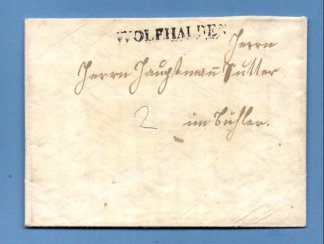 WOLFHALDEN
Herrn
Herrn Hauptmann Sutter
2
im Bühler.